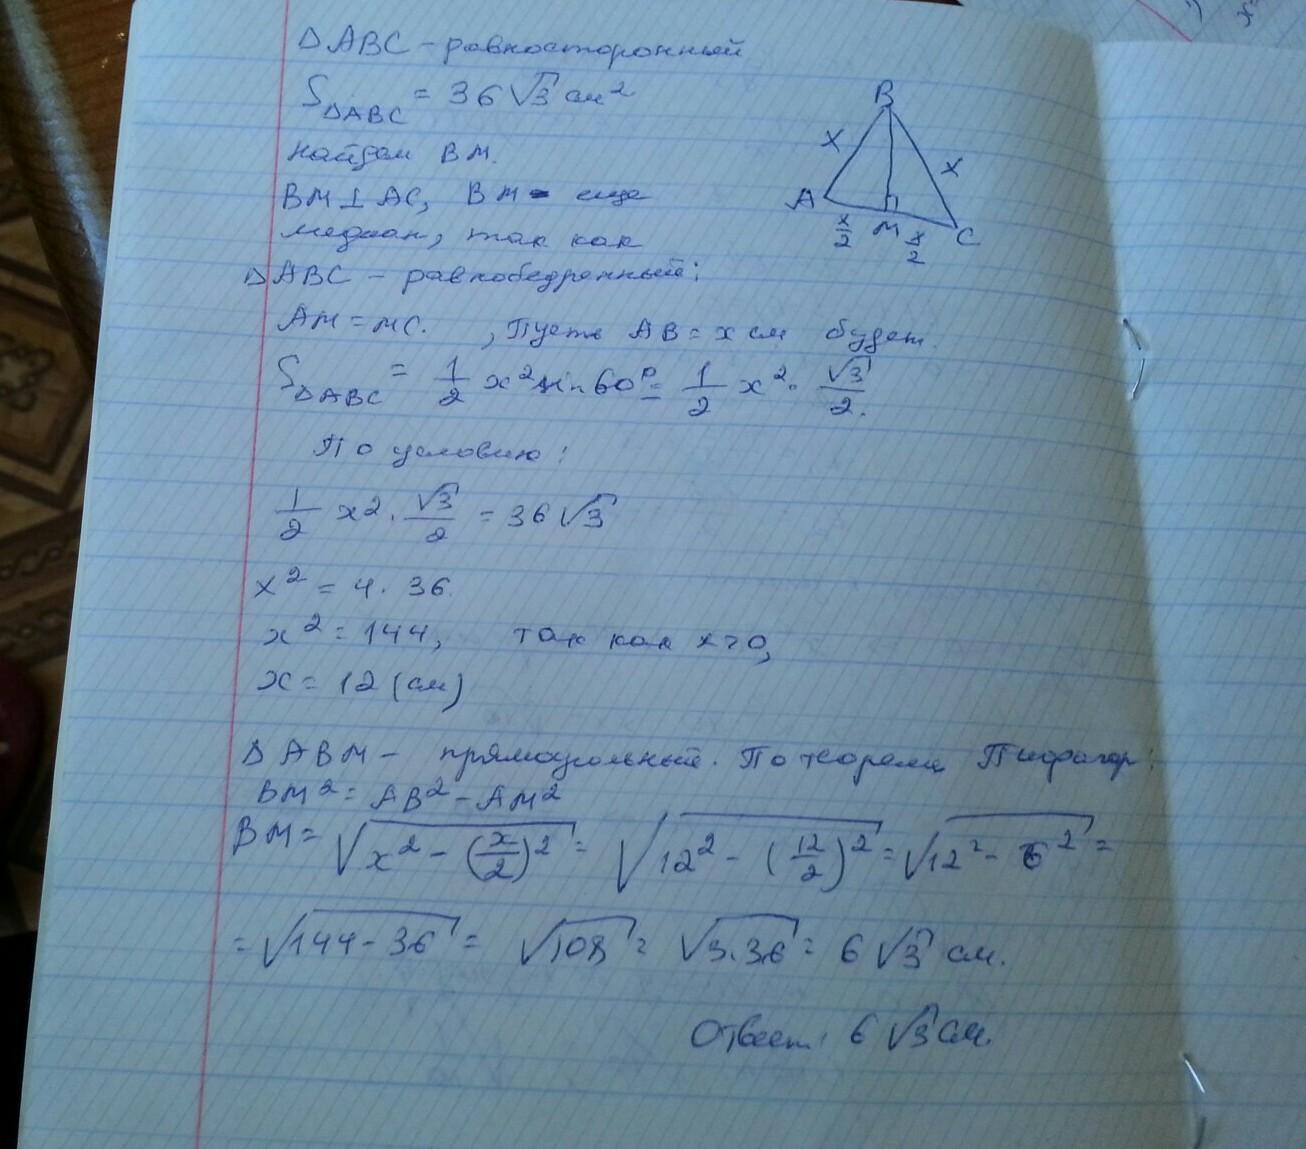 ΔABC – равносторонный
S ΔABC = 36√3 см²
найдем BM.
BM⊥AC, BM – еще
медиан, так как
ΔABC – равнобедренный;
AM = MC. , Пусть AB = x см будет.
S ΔABC = 1/2 x² sin 60° = 1/2 x² · √3/2.
По условию:
1/2 x² · √3/2 = 36√3
x² = 4 · 36.
x² = 144, так как x>0,
x = 12 (см)
ΔABM – прямоугольный. По теореме Пифагор:
BM² = AB² – AM²
BM = √(x² – (x/2)²) = √(12² – (12/2)²) = √(12² – 6²) =
= √(144 – 36) = √108 = √(3·36) = 6√3 см.
Ответ: 6√3 см.
B
x
x
A
x/2
M
x/2
C